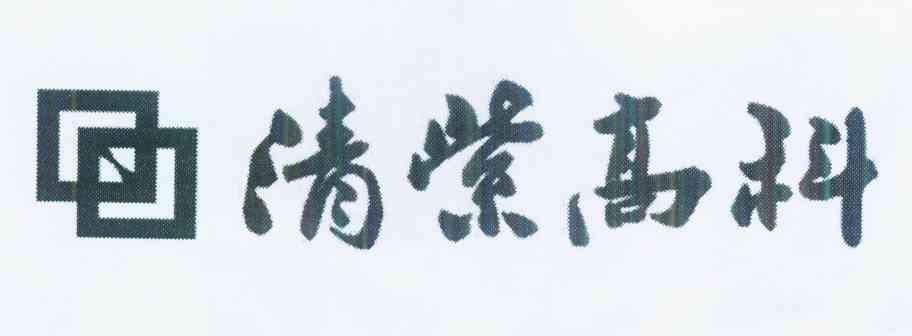 清紫高科